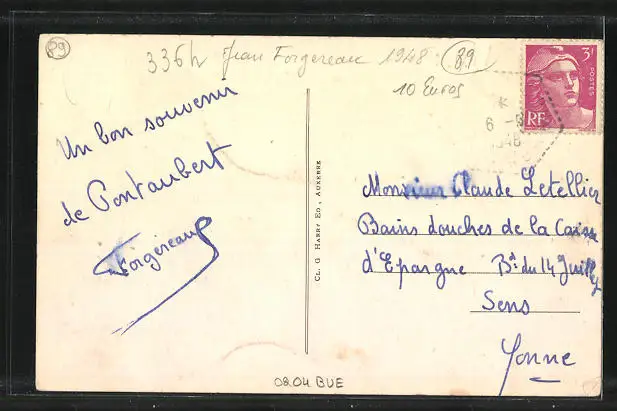 89
336h Jean Forgereau 1948 89
10 Euros
3F
POSTES
RF
6 -8
1948
Un bon souvenir
de Pontaubert
Forgereau
CL. G HARRY ED, AUXERRE
Monsieur Claude Letellier
Bains douches de la Caisse
d'Epargne Bd du 14 Juillet
Sens
Yonne
08.04 BUE